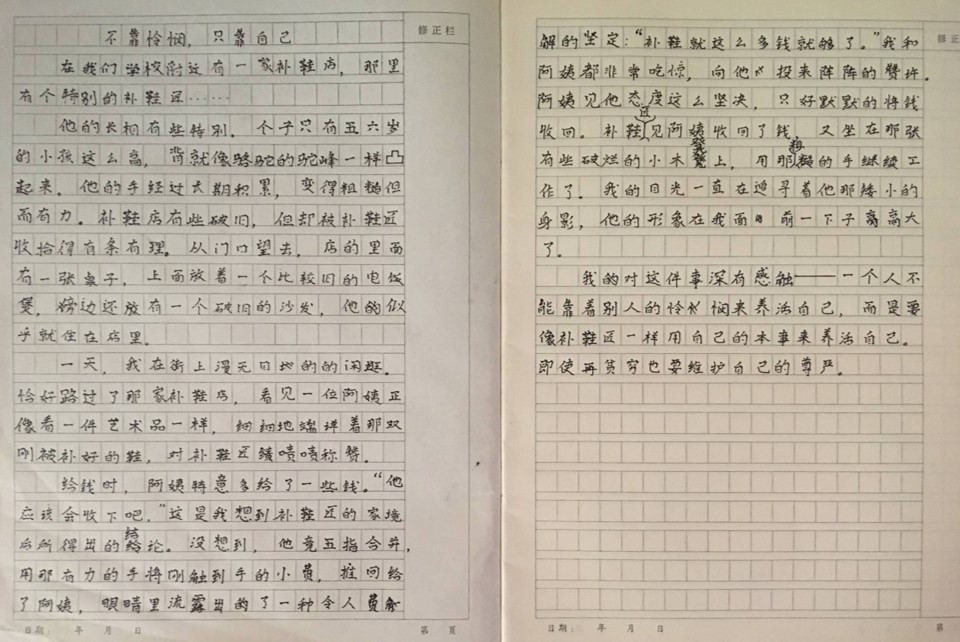 不靠怜悯，只靠自己
修正栏
在我们学校附近有一家补鞋店，那里
有个特别的补鞋匠……
他的长相有些特别。个子只有五六岁
的小孩这么高，背就像骆驼的驼峰一样凸
起来。他的手经过长期积累，变得粗糙但
而有力。补鞋店有些破旧，但却被补鞋匠
收拾得有条有理。从门口望去，店的里面
有一张桌子，上面放着一个比较旧的电饭
煲，旁边还放有一个破旧的沙发，他的似
乎就住在店里。
一天，我在街上漫无目地的的闲逛。
恰好路过了那家补鞋店，看见一位阿姨正
像看一件艺术品一样，细细地端详着那双
刚被补好的鞋，对补鞋匠啧啧称赞。
给钱时，阿姨特意多给了一些钱。“他
应该会收下吧。”这是我想到补鞋匠的家境
后所得出的结论。没想到，他竟五指合并，
用那有力的手将刚触到手的小费，推回给
了阿姨，眼睛里流露出的了一种令人
日期： 年 月 日 第 页
修正
解的坚定：“补鞋就这么多钱就够了。”我和
阿姨都非常吃惊，向他投来阵阵的赞许。
阿姨见他态度这么坚决，只好默默的将钱
收回。补鞋匠见阿姨收回了钱，又坐在那张
有些破烂的小木凳上，用那粗糙的手继续工
作了。我的目光一直在追寻着他那矮小的
身影，他的形象在我面前一下子高大
了。
我的对这件事深有感触——一个人不
能靠着别人的怜悯来养活自己，而是要
像补鞋匠一样用自己的本事来养活自己。
即使再贫穷也要维护自己的尊严。
日期： 年 月 日 第